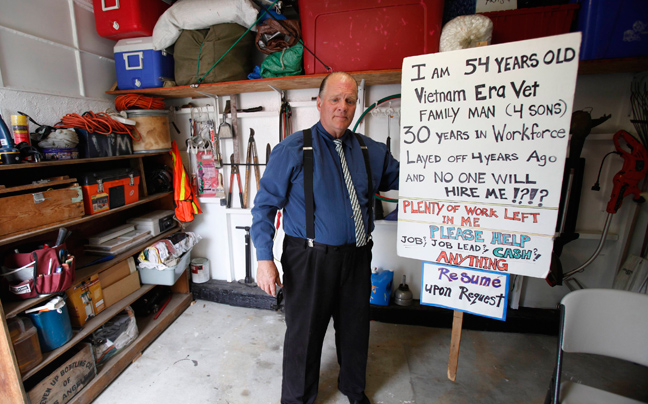 I AM 54 YEARS OLD
VIETNAM ERA VET
FAMILY MAN (4 SONS)
30 YEARS IN WORKFORCE
LAYED OFF 4 YEARS AGO
AND NO ONE WILL
HIRE ME!!??
PLENTY OF WORK LEFT
IN ME
PLEASE HELP
JOB, JOB LEAD, CASH,
ANYTHING
RESUME
UPON REQUEST